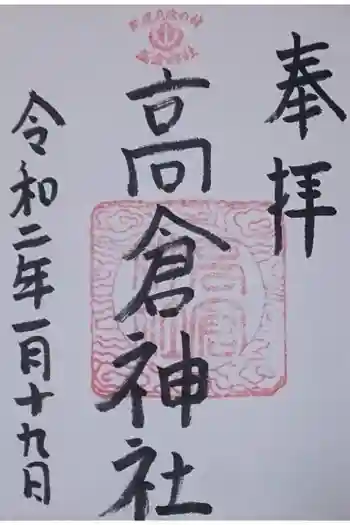 奉拝
高倉神社
令和二年一月十九日